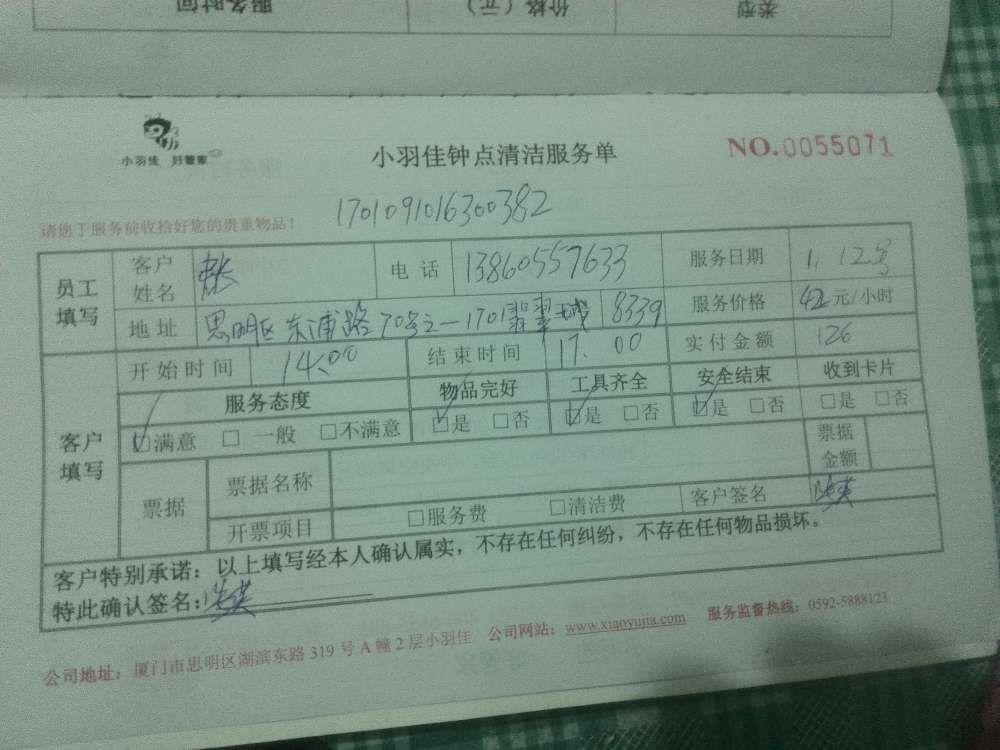 服务时间 价格（元） 类型
小羽佳 好管家
小羽佳钟点清洁服务单
NO.0055071
请您于服务前收拾好您的贵重物品！
1701091016300382
员工填写 客户姓名 电话 13860557633 服务日期 1.12号
地址 思明区东浦路70号之一1701翡翠 8339 服务价格 42元/小时
客户填写 开始时间 14:00 结束时间 17:00 实付金额 126
服务态度 物品完好 工具齐全 安全结束 收到卡片
☑满意 □一般 □不满意 ☑是 □否 ☑是 □否 ☑是 □否 □是 □否
票据 票据名称 票据金额
开票项目 □服务费 □清洁费 客户签名
客户特别承诺：以上填写经本人确认属实，不存在任何纠纷，不存在任何物品损坏。
特此确认签名：
公司地址：厦门市思明区湖滨东路319号A幢2层小羽佳 公司网站：www.xiaoyujia.com 服务监督热线：0592-5888123